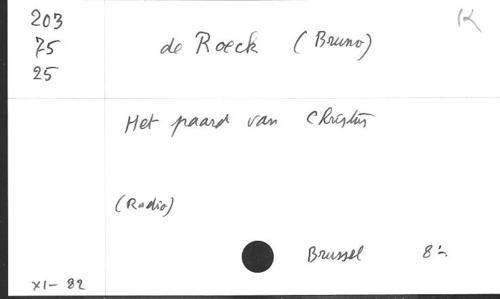 203
75
25
K
de Roeck (Bruno)
Het paard van Christus
(Radio)
Brussel 8°
XI- 82